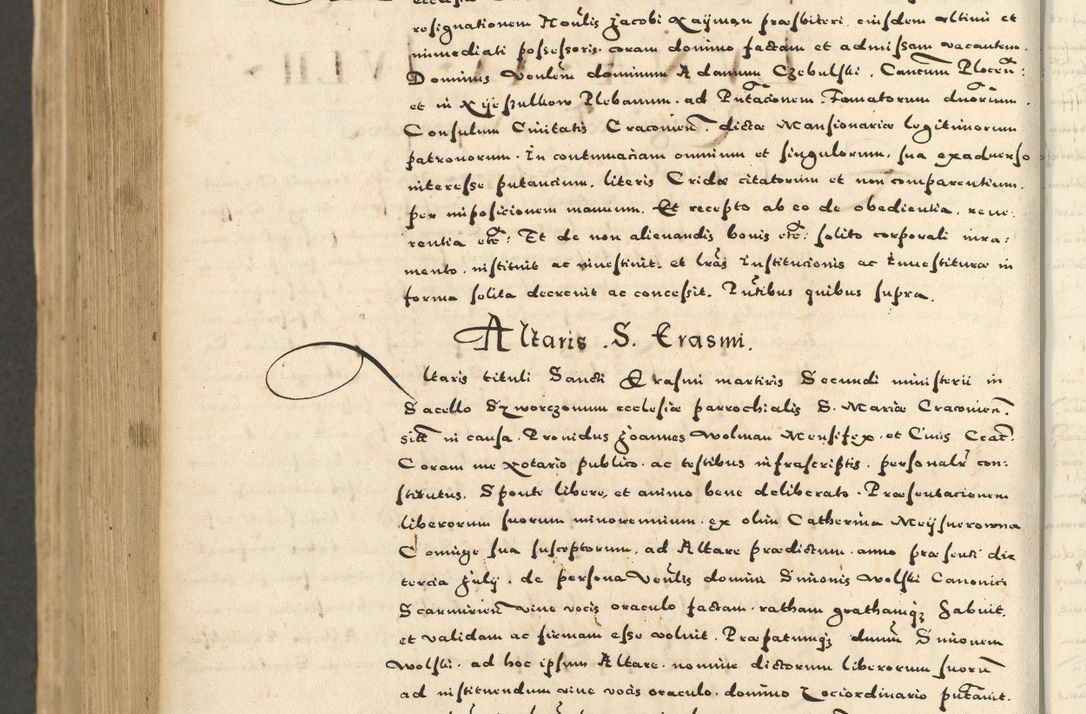 resignationem Hon̄lis Jacobi Rayman præsbiteri, eiusdem vltimi et
immediati possessoris. coram domino factam et admissam vacantem.
Dominus Venlem dominum Adamum Czebulski. Canūm Plocen̄:
et in Plebanum. ad Pn̄tacionem. Famatorum duorum.
Consulum Ciuitatis Cracouien̄. dictæ Mansionariæ legitimorum
patronorum. In contumaciam omnium et singulorum, sua exaduerso
interesse putancium, literis Cridæ citatorum et non comparentium.
per imposicionem manuum. Et recepto ab eo de obedientia, reue:
rentia etc̄: Et de non alienandis bonis etc̄: solito corporali iura:
mento. instituit ac inuestiuit. et lr̄as Institucionis ac Inuestituræ in
forma solita decreuit ac concessit. Pn̄tibus quibus supra.
Altaris .S. Erasmi.
ltaris tituli Sancti Erasmi martiris Secundi ministerii in
Sacello Szworczonum ecclesiæ parrochialis S. Mariæ Cracouien̄.
sit̄ in causa. Prouidus Joannes Wolman Mensifex. et Ciuis Crac̄.
Coram me Notario publico. ac testibus infrascriptis. personalr̄ con:
stitutus. Sponte libere, et animo bene deliberato. Præsentacionem
liberorum suorum minorennium. ex olim Catherina Meysnerowna
Coniuge sua susceptorum, ad Altare prædictum. anno præsenti die
tercia Julij. de persona Ven̄lis domini Simonis Wolski Canonici
Scarmirien̄ viue vocis oraculo factam. ratham grathamqꝫ habuit.
et validam ac firmam esse voluit. Præfatumqꝫ dn̄um Simonem
Wolski. ad hoc ipsum Altare. nomine dictorum liberorum suorū
ad instituendum viue vocis oraculo. domino Lociordinario pn̄tauit.